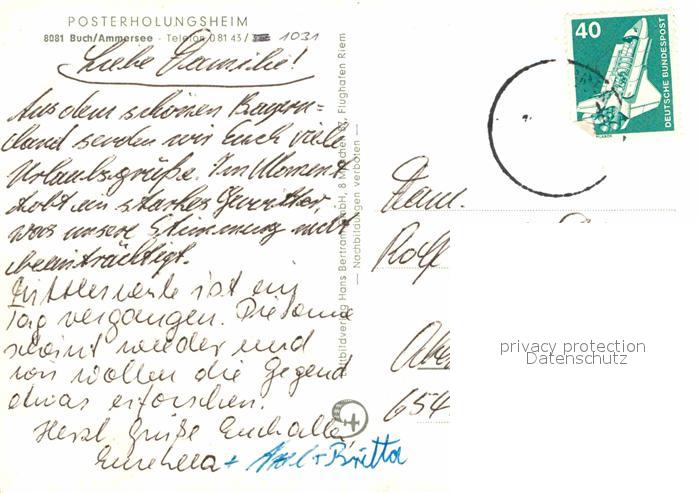 POSTERHOLUNGSHEIM
8081 Buch/Ammersee - Telefon 0 81 43 / 1031
Liebe Familie!
Aus dem schönen Bayern=
land senden wir Euch viele
Urlaubsgrüße. Im Moment
tobt ein starkes Gewitter,
was unsere Stimmung nicht
beeinträchtigt.
Mittlerweile ist ein
Tag vergangen. Die Sonne
scheint wieder und
wir wollen die Gegend
etwas erforschen.
Herzl. Grüße Euch alle
+ Axel + Britta
Luftbildverlag Hans Bertram GmbH, 8 München 87, Flughafen Riem
— Nachbildungen verboten —
40
DEUTSCHE BUNDESPOST
Fam.
Rolf
654
privacy protection
Datenschutz